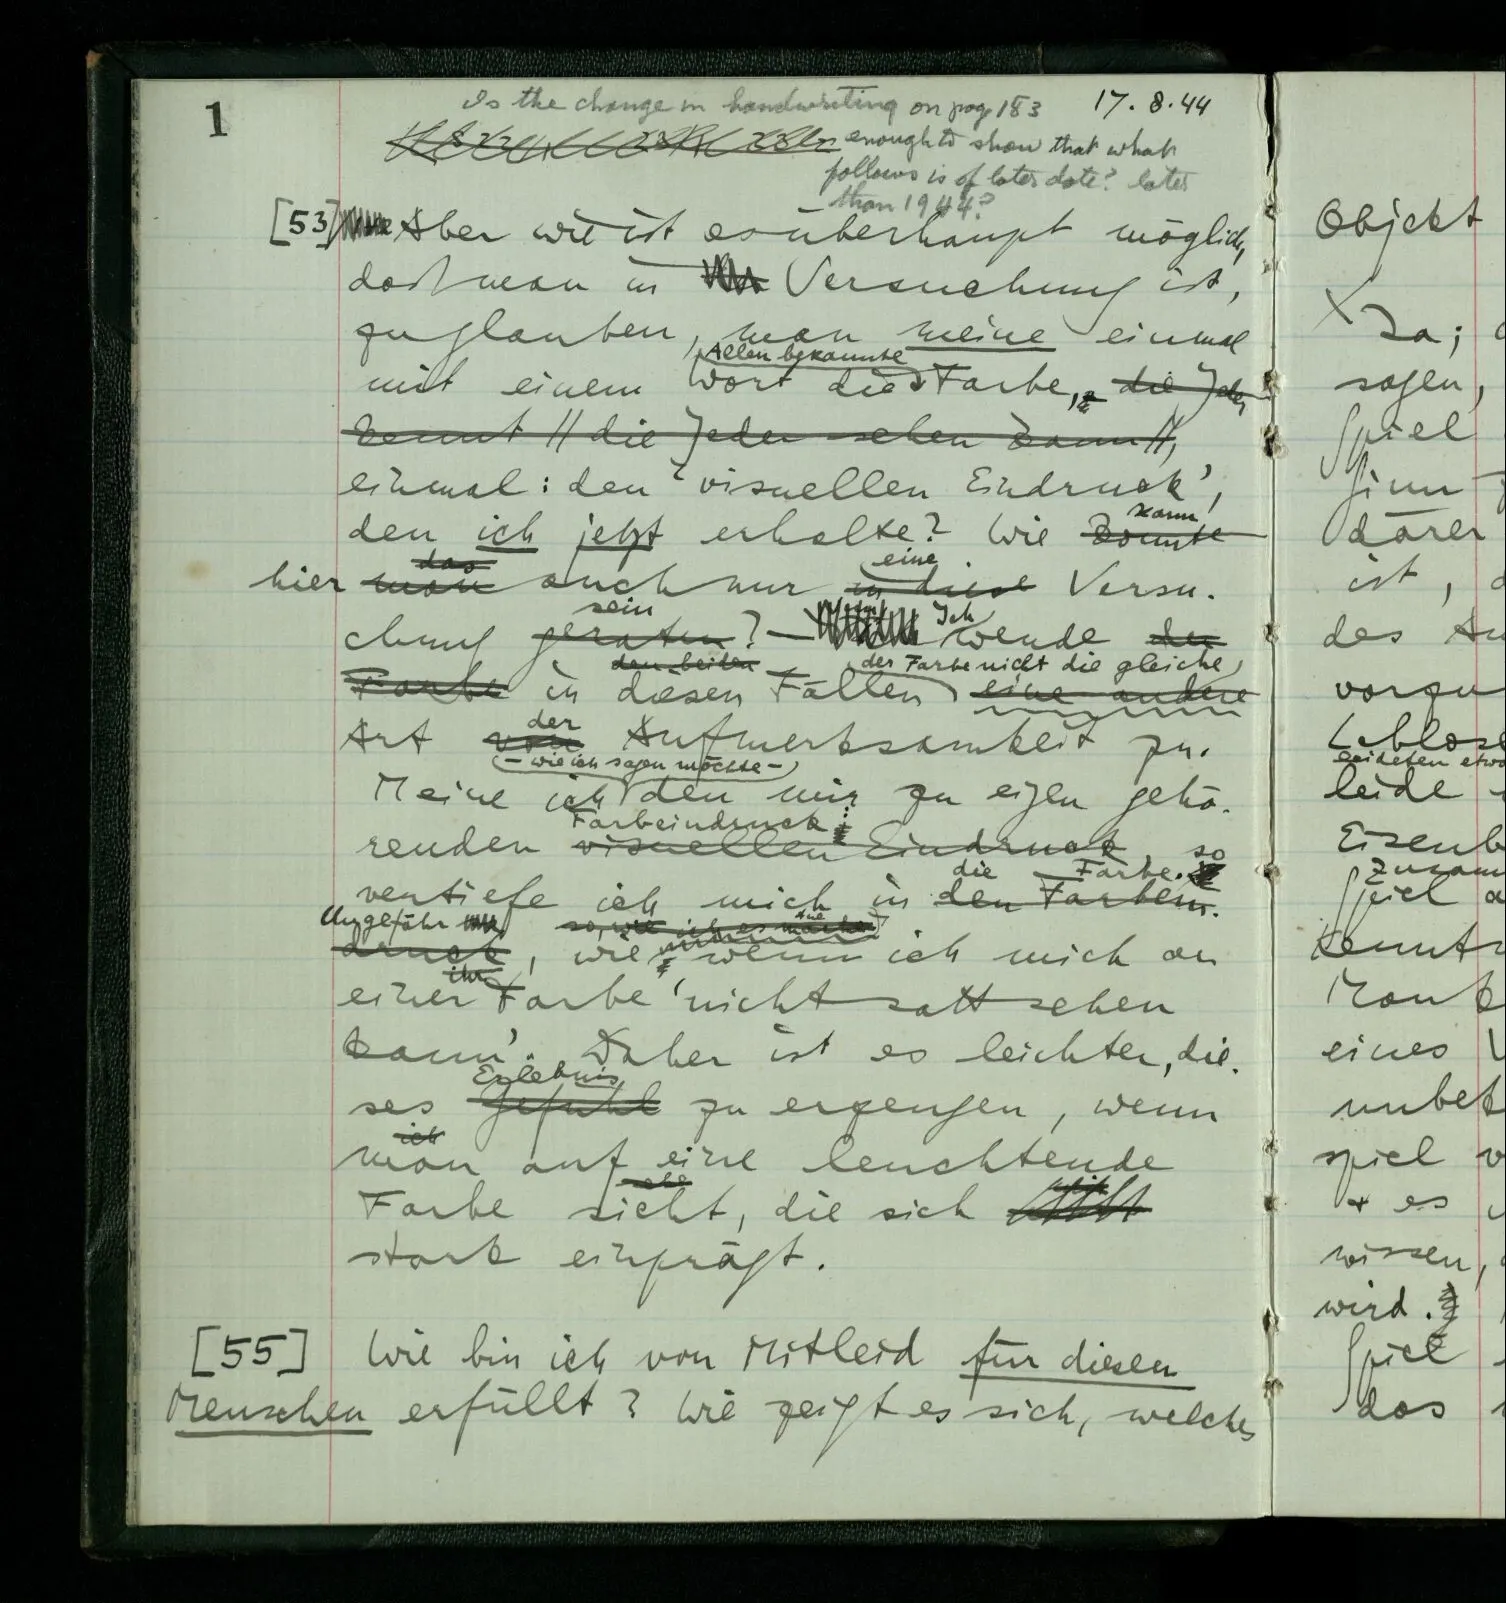 1
Is the change in handwriting on page 183 17.8.44
enough to show that what
follows is of later date? later
than 1944?
[53] Aber wie ist es überhaupt möglich,
daß man in Versuchung ist,
zu glauben, man meine einmal
Allen bekannte
mit einem Wort die Farbe, die Jeder
kennt // die Jeder sehen kann //,
einmal: den ‘visuellen Eindruck’,
kann
den ich jetzt erhalte? Wie konnte
das eine
hier man auch nur in diese Versu-
sein Ich
chung geraten? — wende der
den beiden der Farbe nicht die gleiche
Farbe in diesen Fällen eine andere
der
Art von Aufmerksamkeit zu.
– wie ich sagen möchte –
Meine ich den mir zu eigen gehö-
Farbeindruck:
renden visuellen Eindruck, so
die Farbe.
vertiefe ich mich in den Farbein-
Ungefähr so, wie ich es mache
druck, wie wenn ich mich an
ihr
einer Farbe ‘nicht satt sehen
kann’. Daher ist es leichter, die-
Erlebnis
ses Gefühl zu erzeugen, wenn
ich
man auf eine leuchtende
sehe
Farbe sieht, die sich
stark einprägt.
[55] Wie bin ich von Mitleid für diesen
Menschen erfüllt? Wie zeigt es sich, welches
Objekt
Ja;
sagen,
Spiel
Sinn
därer
ist,
des
vorzu
Leblose
leide
Eisenb
Zusam
Spiel
Kenntn
eines
unbet
spiel
es
wissen,
wird.
Spiel
das